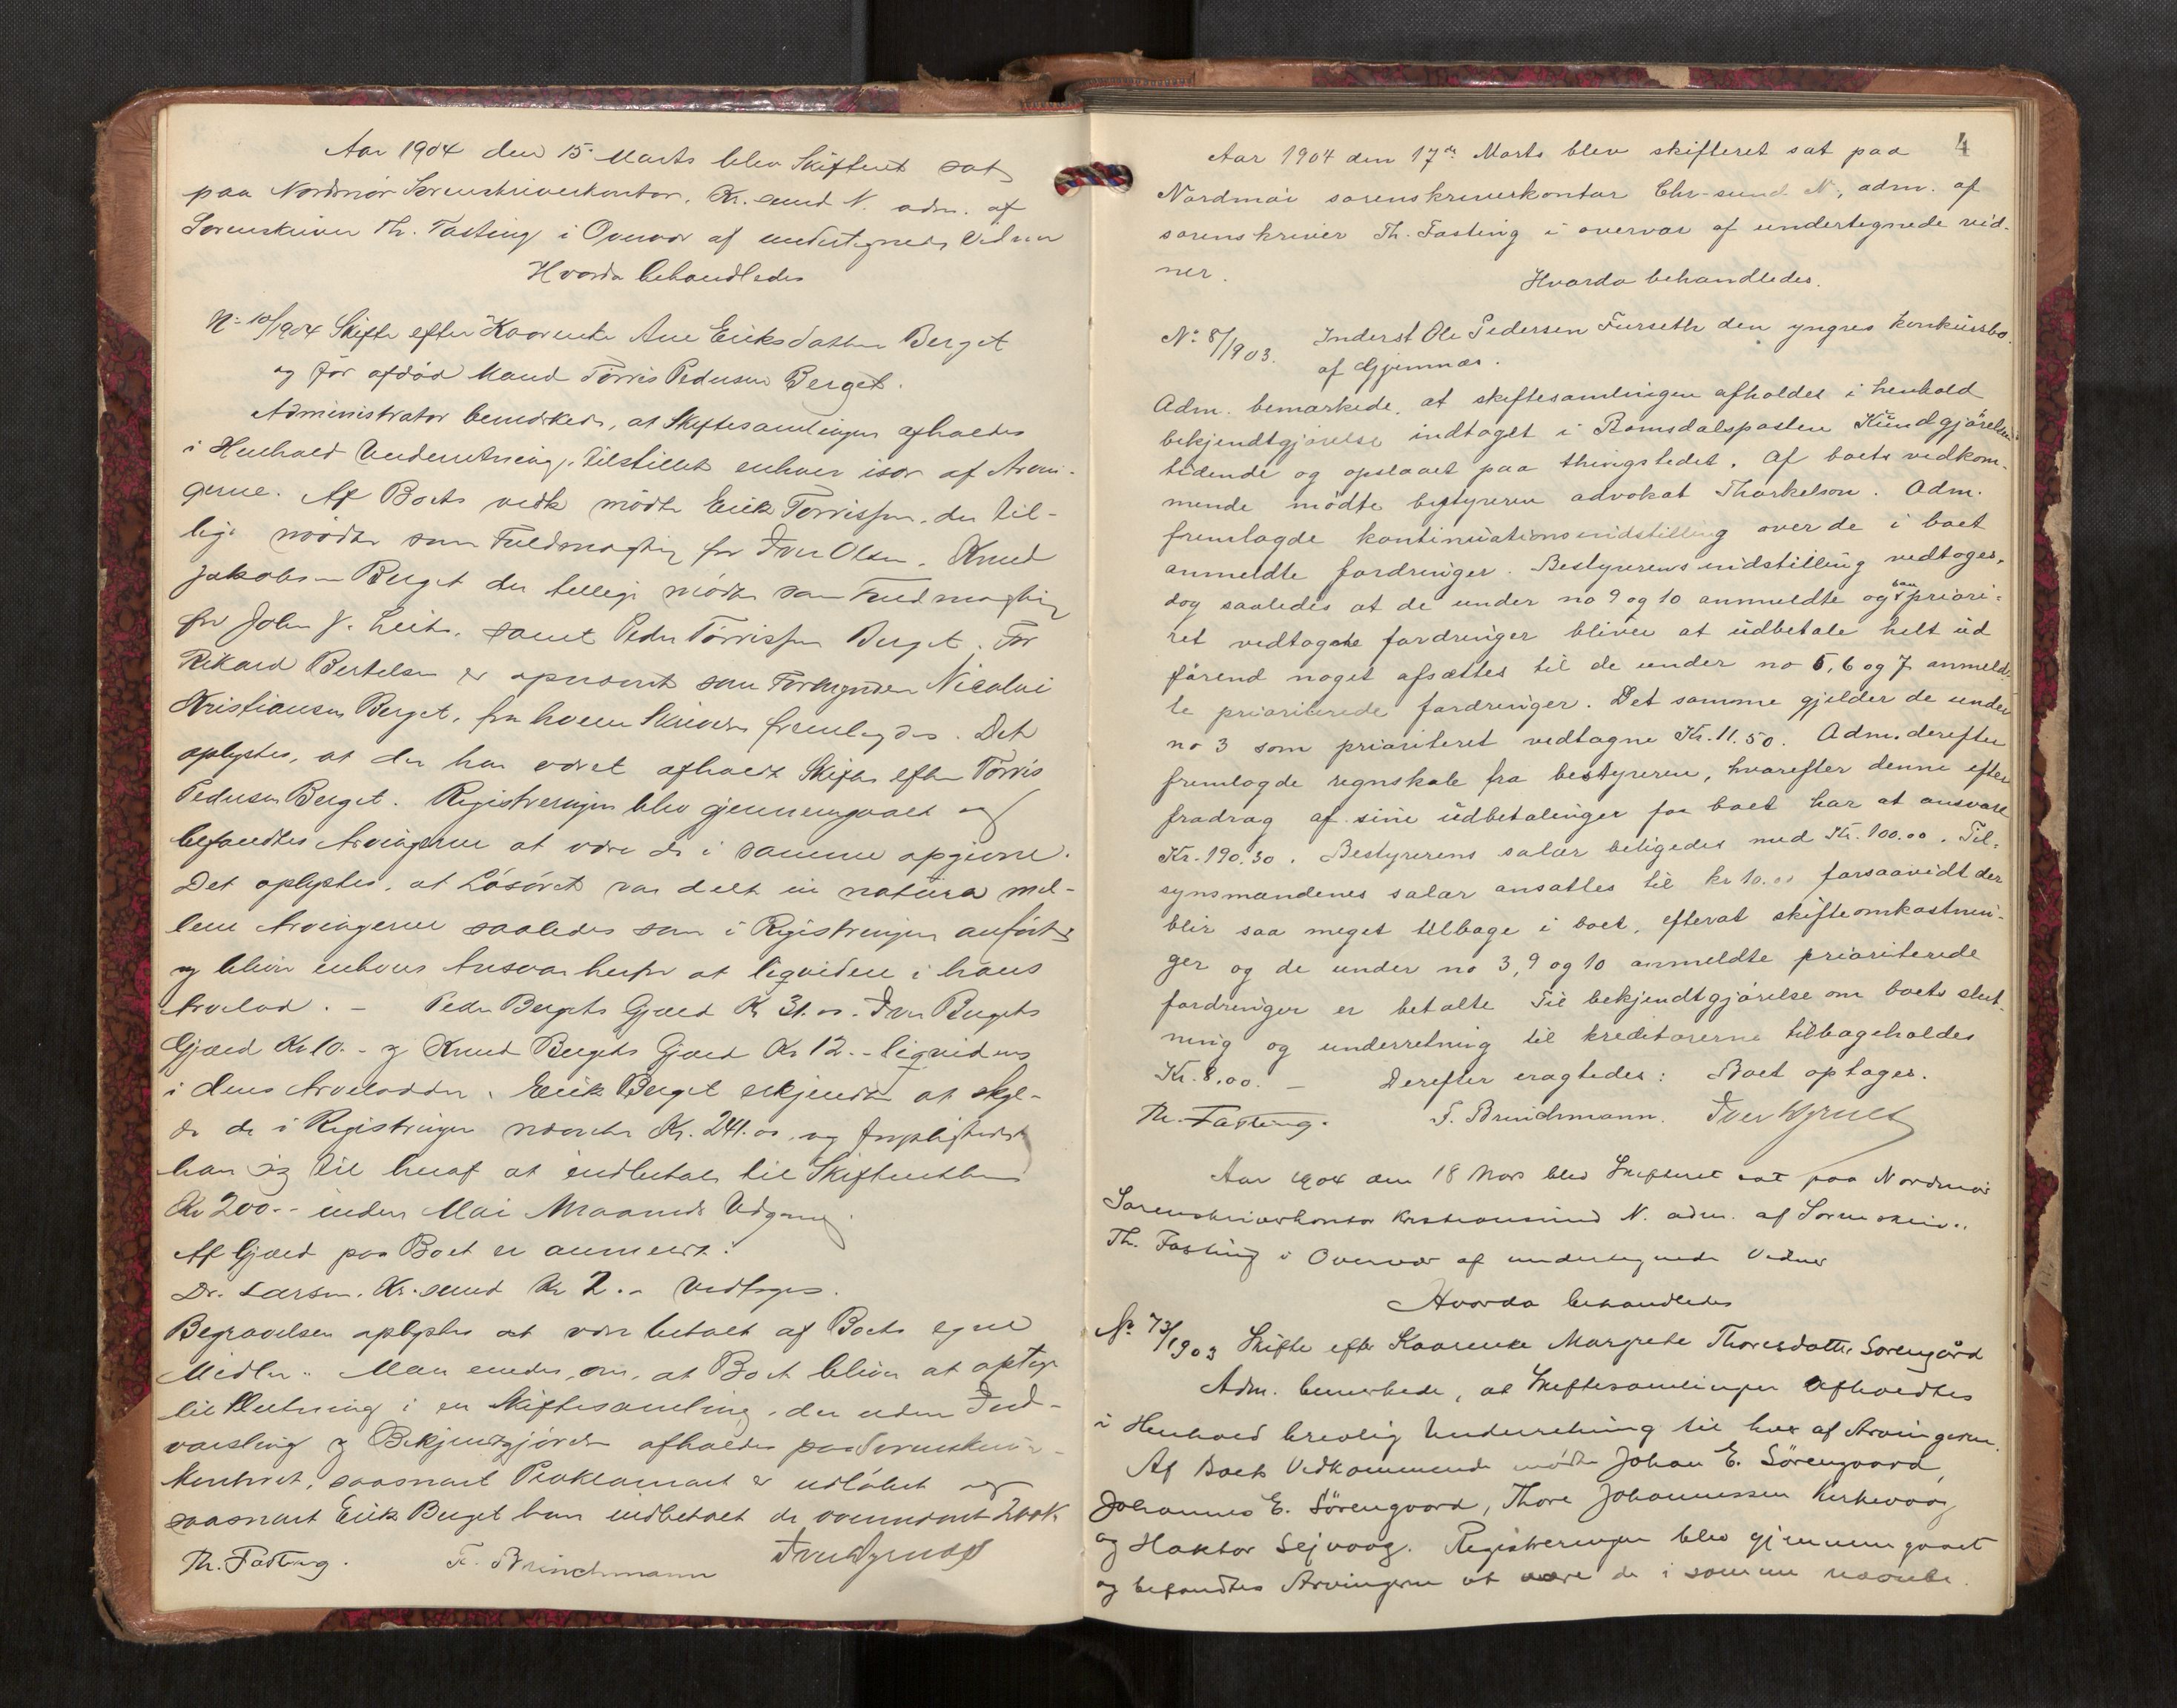 Aar 1904 den 15. Marts blev Skifteret sat
paa Nordmør Sorenskriverkontor, Kr.sund N. adm. af
Sorenskriver Th. Fasting i Overvær af undertegnede Vidner
Hvorda behandledes
No 10/1904 Skifte efter Kaarenke Ane Eriksdatter Berget
og før afdød Mand Tørris Pedersen Berget.
Administrator bemærkede, at Skiftesamlingen afholdes
i Henhold Underretning, tilstillet enhver især af Arvin-
gerne. Af Boets vedk mødte Erik Tørrissen, der til-
lige mødte som Fuldmægtig for Iver Olsen, Knud
Jakobsen Berget der tillige mødte som Fuldmægtig
for John J. samt Peder Tørrissen Berget. For
Rikard Bertelsen er opnævnt som Formynder Nicolai
Kristiansen Berget, fra hvem Skrivelse fremlagdes. Det
oplystes, at der har været afholdt Skifte efter Tørris
Pedersen Berget. Registreringen blev gjennemgaaet og
befandtes Arvingerne at være de i samme opgivne.
Det oplystes, at Løsøret var delt in natura mel-
lem Arvingerne saaledes som i Registreringen anført
og bliver enhvers Ansvar herfor at liqvidere i hans
Arvelod. – Peder Bergets Gjæld Kr 31.00. Iver Bergets
Gjæld Kr 10.- og Knud Bergets Gjæld Kr 12.- liqvideres
i deres Arvelodder. Erik Berget erkjendte at skyl-
de de i Registreringen nævnte Kr. 241.00, og forpligtede
han sig til heraf at indbetale til Skifteretten
Kr 200.- inden Mai Maaneds Udgang.
Af Gjæld paa Boet er anmeldt:
Dr. Larsen, Kr.sund Kr 2.- Vedtoges.
Begravelsen oplystes at være betalt af Boets egne
Midler. Man enedes om, at Boet bliver at optage
til Slutning i en Skiftesamling, der uden Ind-
varsling og Bekjendtgjørelse afholdes paa Sorenskriver-
kontoret, saasnart Proklamaet er udløbet og
saasnart Erik Berget har indbetalt de ovennævnt 200 Kr.
Th. Fasting. F. Brinchmann
4
Aar 1904 den 17de Marts blev skifteret sat paa
Nordmør sorenskriverkontor Chr-sund N., adm. af
sorenskriver Th. Fasting i overvær af undertegnede vid-
ner.
Hvorda behandledes.
No 8/1903. Inderst Ole Pedersen Furseth den yngres konkursbo
af Gjemnæs.
Adm. bemærkede, at skiftesamlingen afholdes i henhold
bekjendtgjørelse indtaget i Romsdalsposten Kundgjørelses
tidende og opslaaet paa thingstedet. Af boets vedkom-
mende mødte bestyreren advokat Thorkelson. Adm.
fremlagde kontinuationsindstilling over de i boet
anmeldte fordringer. Bestyrerens indstilling vedtoges,
dog saaledes at de under no 9 og 10 anmeldte og som priori-
ret vedtagne fordringer bliver at udbetale helt ud
førend noget afsættes til de under no 5, 6 og 7 anmeld-
te prioriterede fordringer. Det samme gjelder de under
no 3 som prioriteret vedtagne Kr. 11.50. Adm. derefter
fremlagde regnskab fra bestyreren, hvorefter denne efter
fradrag af sine udbetalinger for boet har at ansvare
Kr. 190.30. Bestyrerens salær beligedes med Kr. 100.00. Til-
synsmandenes salær ansattes til kr 10.00 forsaavidt der
blir saa meget tilbage i boet, efterat skifteomkostnin-
ger og de under no 3, 9 og 10 anmeldte prioriterede
fordringer er betalte. Til bekjendtgjørelse om boets slut-
ning og underretning til kreditorerne tilbageholdes
Kr. 8.00. – Derefter eragtedes: Boet optages.
Th. Fasting. F. Brinchmann.
Aar 1904 den 18 Mars blev Skifteret sat paa Nordmør
Sorenskriverkontor Kristiansund N. adm. af Sorenskriv..
Th. Fasting i Overvær af undertegnede Vidner
Hvorda behandledes
No 73/1903 Skifte efter Kaarenke Margrete Thoresdatter Sorengård
Adm. bemerkede, at Skiftesamlingen afholdtes
i Henhold brevlig Underretning til hver af Arvingerne.
Af Boets Vedkommende mødte Johan E. Sörengaard,
Johannes E. Sörengaard, Thore Johannessen Kirkevaag
og Haktor Sejvaag. Registreringen blev gjennemgaaet
og befandtes Arvingerne at være de i samme nævnte.